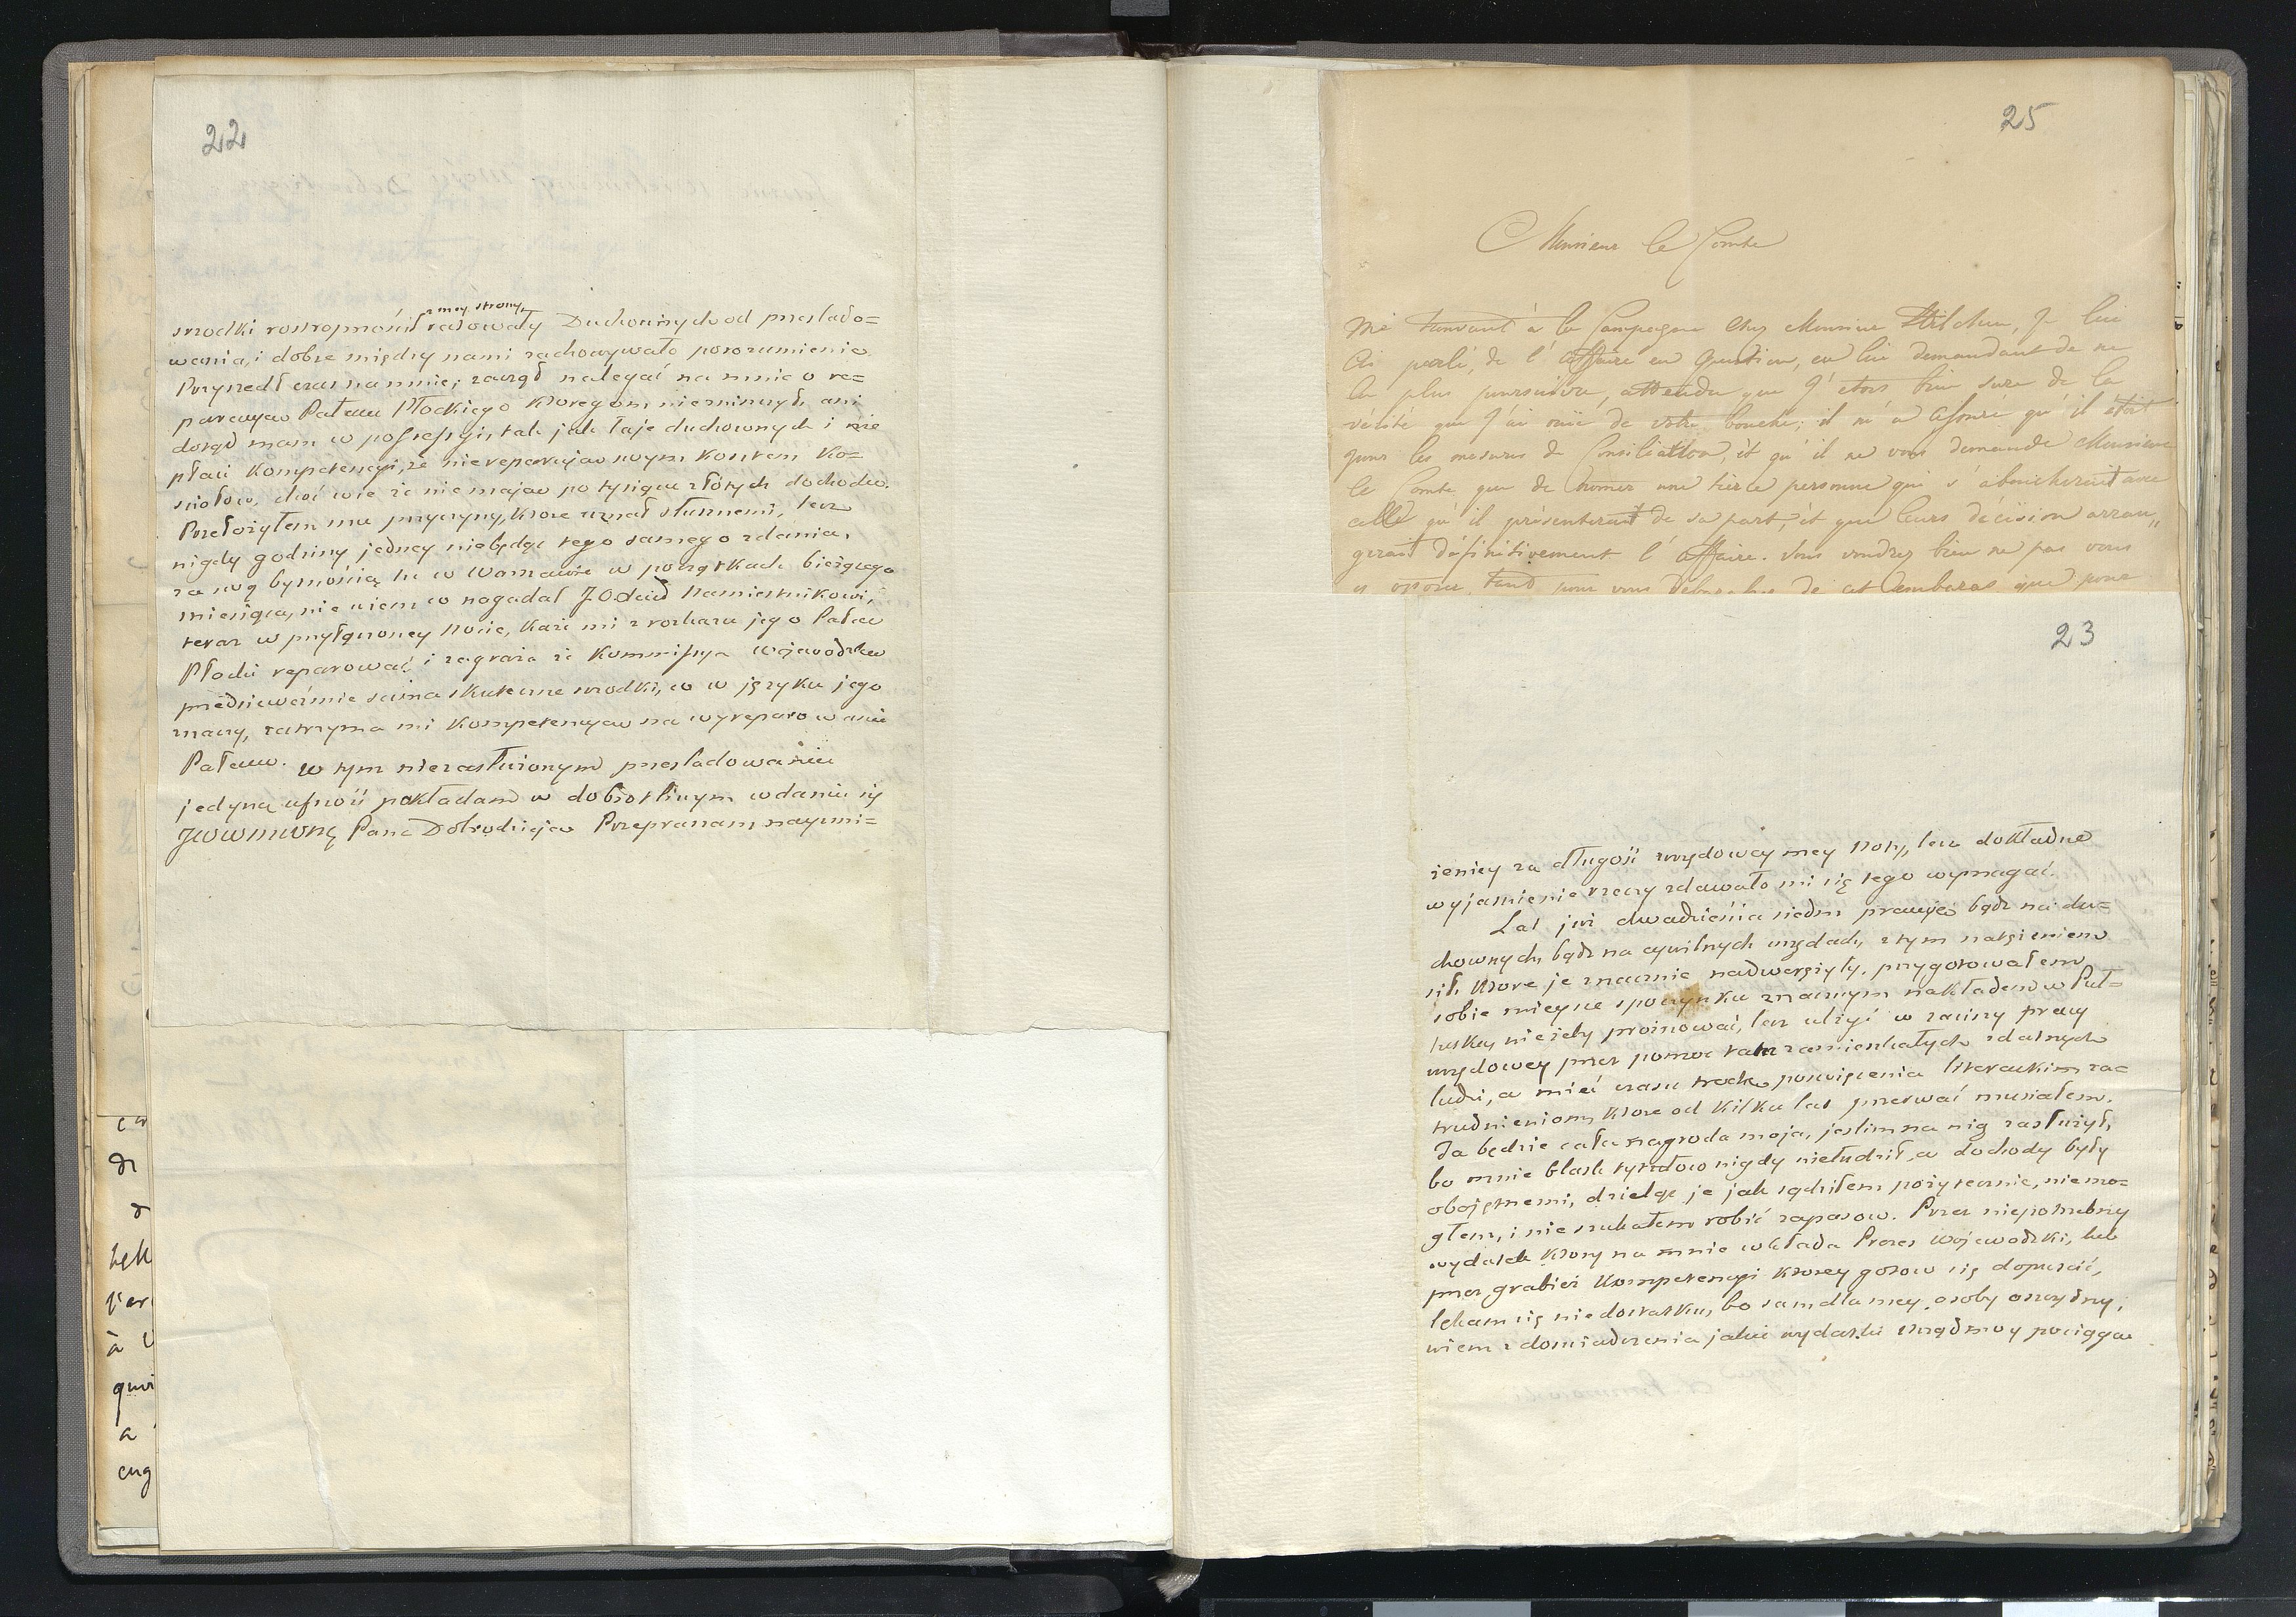 22
z mey strony
srzodki rostropności ratowały Duchownych od przeslado=
wania, i dobre między nami zachowywało porozumienie.
Przyszedł czas na mnie; zaczął nalegać na mnie o re=
paracyą Pałacu Płockiego ktorego m nie zniszczył, ani
dotąd mam w possessyi, tak jak łaje duchownych i nie
płaci Kompetencyi, że nie reparują swym kosztem Ko=
sciołow, choć wie że nie mają po tysiącu złotych dochodu.
Przełożyłem mu przyczyny, ktore uznał słusznemi, lecz
nigdy godziny jedney niebędąc tego samego zdania,
za swą bytnością tu w Warszawie w początkach bieżącego
miesiąca, nie wiem co nagadał JO Xciu Namiestnikowi,
teraz w przyłączoney Nocie, każe mi z rozkazu jego Pałac
Płocki reparować, i zagraża że Kommissya Wojewodzka
przedsiewezmie sama skuteczne srzodki, co w języku jego
znaczy, zatrzyma mi Kompetencyą na wyreparowanie
Pałacu. W tym niezasłużonym przesladowaniu
jedyną ufność pokładam w dobrotliwym wdaniu się
JWWMWXcę Pana Dobrodzieja Przepraszam nayuni=
25
Monsieur le Comte
Me trouvant à la Campagne chez Monsieur, Je lui
ai parlé, de l'affaire en question, en lui demandant de ne
la plus poursuivre, attendu que j'étois bien sure de la
vérité que j'ai ouie de votre bouche; il m'a assuré qu'il étoit
pour les mesures de Consiliation, èt qu'il ne vous demande Monsieur
le Comte que de nomer une tierce personne qui s'aboucheroit avec
celle qu'il présenterait de sa part, èt que leurs décision arran„
gerait définitivement l'affaire. Vous voudrez bien ne pas vous
y oposer, tant pour vous debarasser de cet embaras que pour
23
żeniey za długość urzędowey mey Noty, lecz dokładne
wyjasnienie rzeczy zdawało mi się tego wymagać.
Lat już dwadzieścia siedm pracując bądź na du=
chownych, bądź na cywilnych urzędach, z tym natężeniem
sił, ktore je znacznie nadwerężyły, przygotowałem
sobie mieysce spoczynku znacznym nakładem w Puł=
tusku, nie żeby prożnować, lecz ulżyć w zaciszy pracy
urzędowey przez pomoc tam zamieszkałych zdatnych
ludzi, a mieć czasu trochę poswięcenia literackim za=
trudnieniom, ktore od kilku lat przerwać musiałem.
Ta będzie cała nagroda moja, jeslim na nię zasłużył,
bo mnie blask tytułow nigdy niełudził, a dochody były
obojętnemi, dzieląc je jak sądziłem pożytecznie, niemo=
głem, i nie szukałem robić zapasow. Przez niepotrzebny
wydatek ktory na mnie wkłada Prezes Wojewodzki, lub
przez grabież Kompetencyi ktorey gotow się dopuscić,
lękam się niedostatku, bo sam dla mey osoby oszczędny,
wiem z doswiadczenia jakie wydatki Urząd moy pociąga